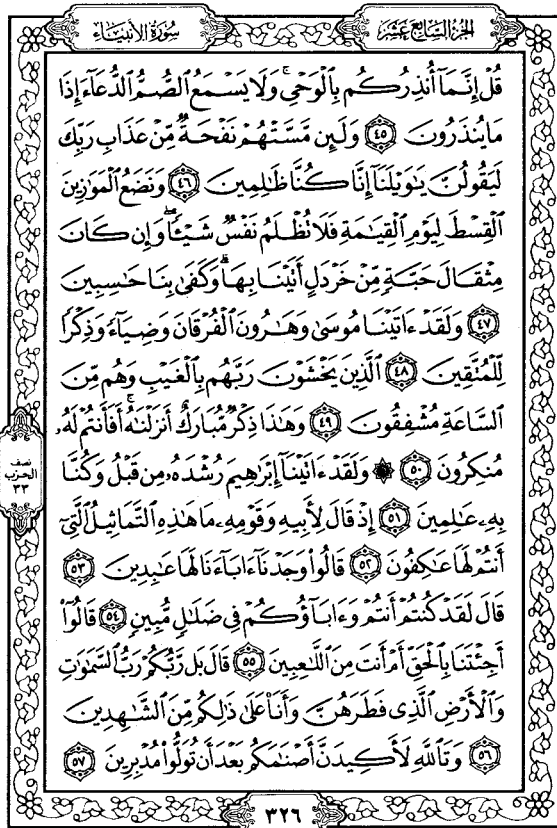 سُورَةُ الأَنبِيَاء
الجُزءُ السَّابِع عَشَر
قُلْ إِنَّمَآ أُنذِرُكُم بِٱلْوَحْىِ ۚ وَلَا يَسْمَعُ ٱلصُّمُّ ٱلدُّعَآءَ إِذَا
مَا يُنذَرُونَ ﴿٤٥﴾ وَلَئِن مَّسَّتْهُمْ نَفْحَةٌ مِّنْ عَذَابِ رَبِّكَ
لَيَقُولُنَّ يَٰوَيْلَنَآ إِنَّا كُنَّا ظَٰلِمِينَ ﴿٤٦﴾ وَنَضَعُ ٱلْمَوَٰزِينَ
ٱلْقِسْطَ لِيَوْمِ ٱلْقِيَٰمَةِ فَلَا تُظْلَمُ نَفْسٌ شَيْـًٔا ۖ وَإِن كَانَ
مِثْقَالَ حَبَّةٍ مِّنْ خَرْدَلٍ أَتَيْنَا بِهَا ۗ وَكَفَىٰ بِنَا حَٰسِبِينَ
﴿٤٧﴾ وَلَقَدْ ءَاتَيْنَا مُوسَىٰ وَهَٰرُونَ ٱلْفُرْقَانَ وَضِيَآءً وَذِكْرًا
لِّلْمُتَّقِينَ ﴿٤٨﴾ ٱلَّذِينَ يَخْشَوْنَ رَبَّهُم بِٱلْغَيْبِ وَهُم مِّنَ
ٱلسَّاعَةِ مُشْفِقُونَ ﴿٤٩﴾ وَهَٰذَا ذِكْرٌ مُّبَارَكٌ أَنزَلْنَٰهُ ۚ أَفَأَنتُمْ لَهُۥ
مُنكِرُونَ ﴿٥٠﴾ ۞ وَلَقَدْ ءَاتَيْنَآ إِبْرَٰهِيمَ رُشْدَهُۥ مِن قَبْلُ وَكُنَّا
بِهِۦ عَٰلِمِينَ ﴿٥١﴾ إِذْ قَالَ لِأَبِيهِ وَقَوْمِهِۦ مَا هَٰذِهِ ٱلتَّمَاثِيلُ ٱلَّتِىٓ
أَنتُمْ لَهَا عَٰكِفُونَ ﴿٥٢﴾ قَالُوا۟ وَجَدْنَآ ءَابَآءَنَا لَهَا عَٰبِدِينَ ﴿٥٣﴾
قَالَ لَقَدْ كُنتُمْ أَنتُمْ وَءَابَآؤُكُمْ فِى ضَلَٰلٍ مُّبِينٍ ﴿٥٤﴾ قَالُوٓا۟
أَجِئْتَنَا بِٱلْحَقِّ أَمْ أَنتَ مِنَ ٱللَّٰعِبِينَ ﴿٥٥﴾ قَالَ بَل رَّبُّكُمْ رَبُّ ٱلسَّمَٰوَٰتِ
وَٱلْأَرْضِ ٱلَّذِى فَطَرَهُنَّ وَأَنَا۠ عَلَىٰ ذَٰلِكُم مِّنَ ٱلشَّٰهِدِينَ
﴿٥٦﴾ وَتَٱللَّهِ لَأَكِيدَنَّ أَصْنَٰمَكُم بَعْدَ أَن تُوَلُّوا۟ مُدْبِرِينَ ﴿٥٧﴾
نصف
الحزب
٣٣
٣٢٦